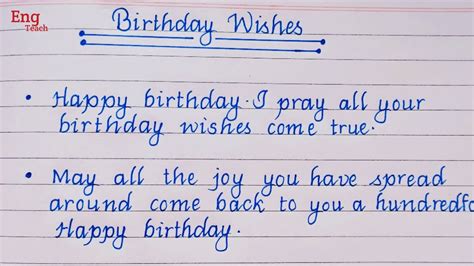 Eng
Teach
Birthday Wishes
• Happy birthday. I pray all your
birthday wishes come true.
• May all the joy you have spread
around come back to you a hundredfo
Happy birthday.